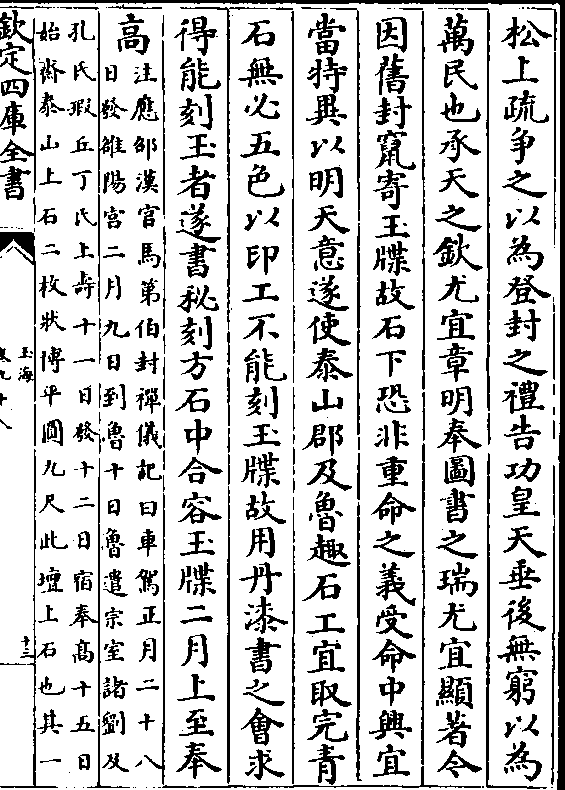 松上疏争之以為登封之禮告功皇天垂後無窮以為
萬民也承天之欽尤宜章明奉圖書之瑞尤宜顯著今
因舊封竄寄玉牒故石下恐非重命之義受命中興宜
當特異以明天意遂使泰山郡及魯趣石工宜取完青
石無必五色以印工不能刻玉牒故用丹漆書之會求
得能刻玉者遂書秘刻方石中合容玉牒二月上至奉
高注應邵漢官馬第伯封禪儀記曰車駕正月二十八
日發雒陽宫二月九日到魯十日魯遣宗室諸劉及
孔氏瑕丘丁氏上壽十一日發十二日宿奉髙十五日
始齋泰山上石二枚狀愽平圓九尺此壇上石也其一
欽定四庫全書
玉海
卷九十八
十三